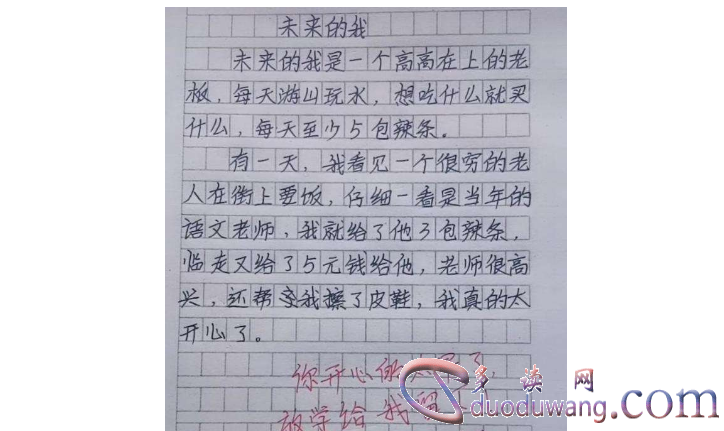 未来的我
未来的我是一个高高在上的老
板，每天游山玩水，想吃什么就买
什么，每天至少5包辣条。
有一天，我看见一个很穷的老
人在街上要饭，仔细一看是当年的
语文老师，我就给了他3包辣条，
临走又给了5元钱给他，老师很高
兴，还帮我擦了皮鞋，我真的太
开心了。
你开心的太早了
放学给我
多读网
duoduwang.com